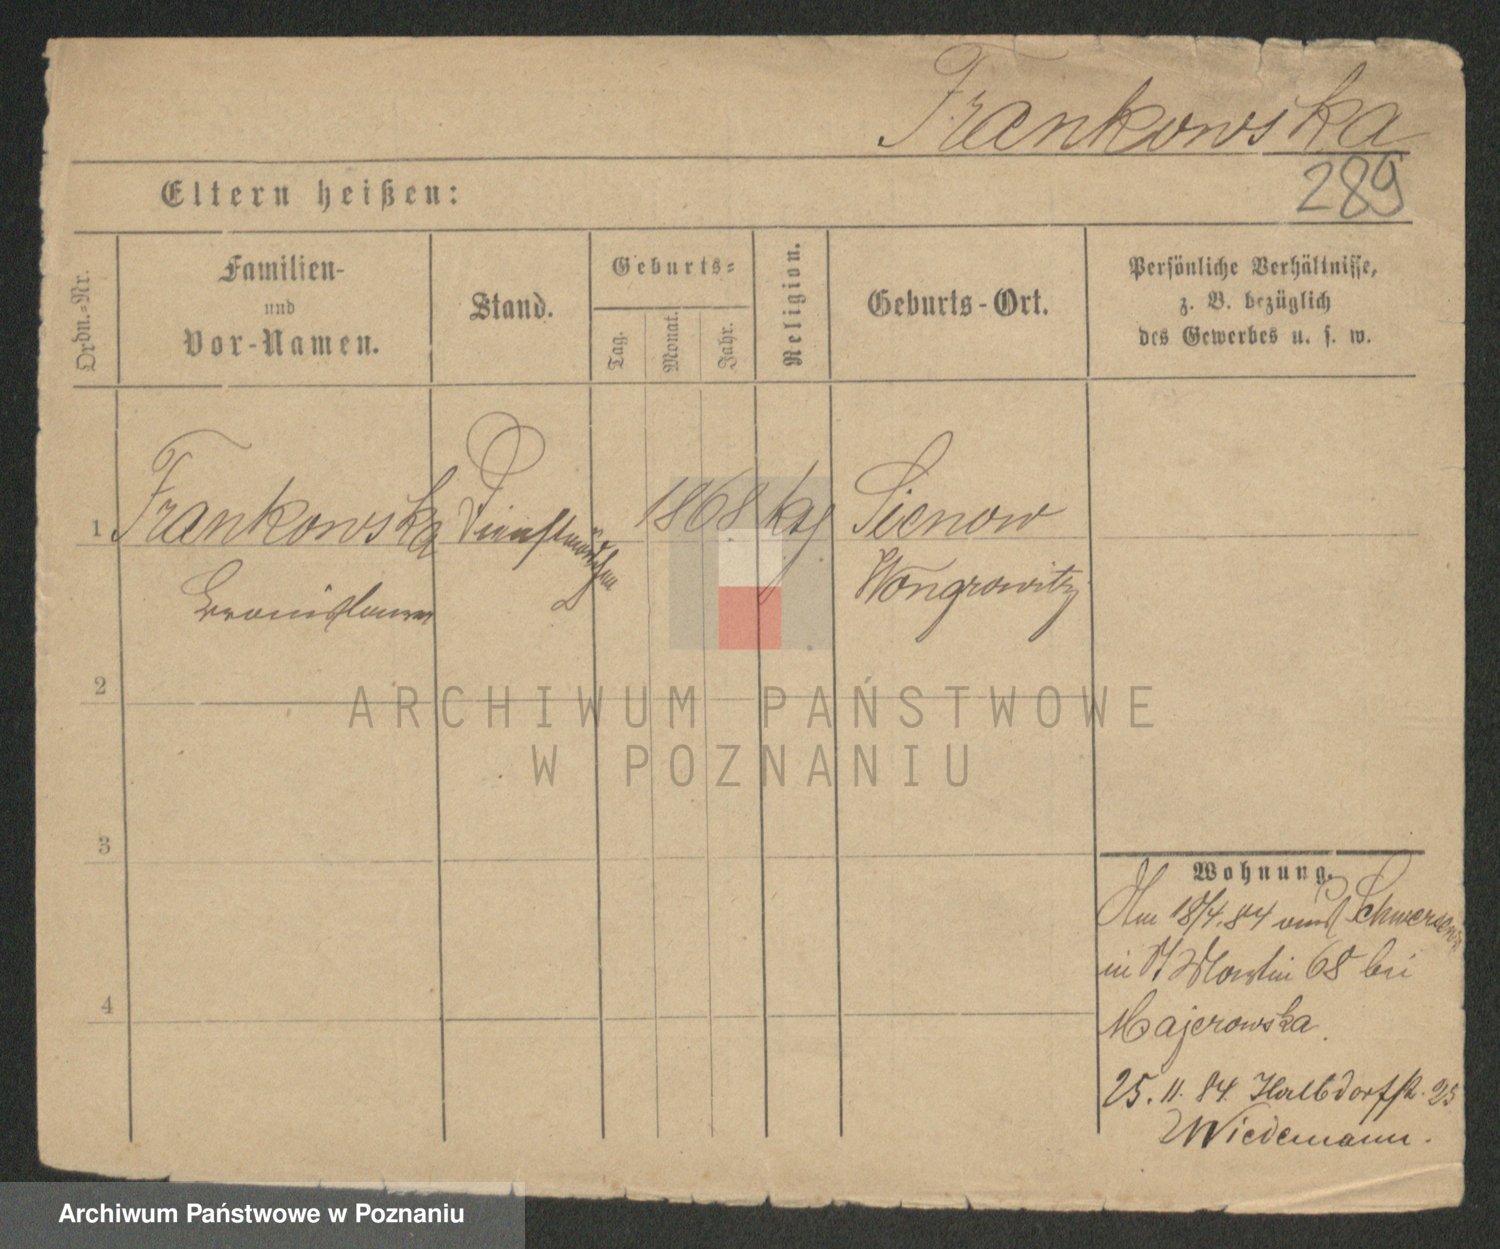 Frankowska
289
Eltern heißen:
Ordn.-Nr.
Familien-
und
Vor-Namen.
Stand.
Geburts-
Tag.
Monat.
Jahr.
Religion.
Geburts-Ort.
Persönliche Verhältnisse,
z. B. bezüglich
des Gewerbes u. s. w.
1 Frankowska Dienstmädchen 1868 kth Sienow
Bronislawa Wongrowitz
2
ARCHIWUM PAŃSTWOWE
W POZNANIU
3
4
Wohnung.
Am 18/4. 84 aus Schwersenz
in St Martin 68 bei
Majerowska.
25. 11. 84. Halbdorfstr. 25
Wiedemann.
Archiwum Państwowe w Poznaniu